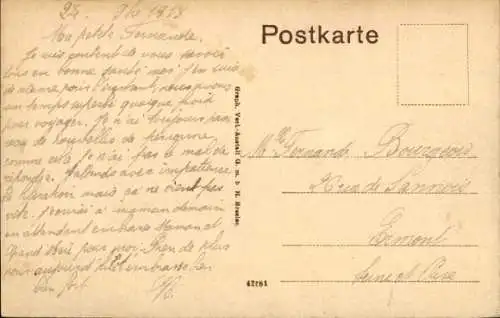 24. 9bre 1918
Ma petite Fernande.
Je suis content de vous savoir
tous en bonne santé moi j'en suis
de même pour l'instant, nous avons
un temps superbe quoique froid
pour voyager. Je n'ai toujours pas
de nouvelles de personne
comme cela je n'ai pas le mal de
répondre. J'attends avec impatience
la libération mais ça ne vient pas
vite. J'écrirai à maman demain
en attendant embrasse maman et
pour moi. Rien de plus
pour aujourd'hui t'embrasse
bien fort
Postkarte
Graph. Verl.-Anstalt G. m. b. H. Breslau.
42781
Mlle Fernand Bourgeois
rue de Sannois
Ermont
Seine et Oise